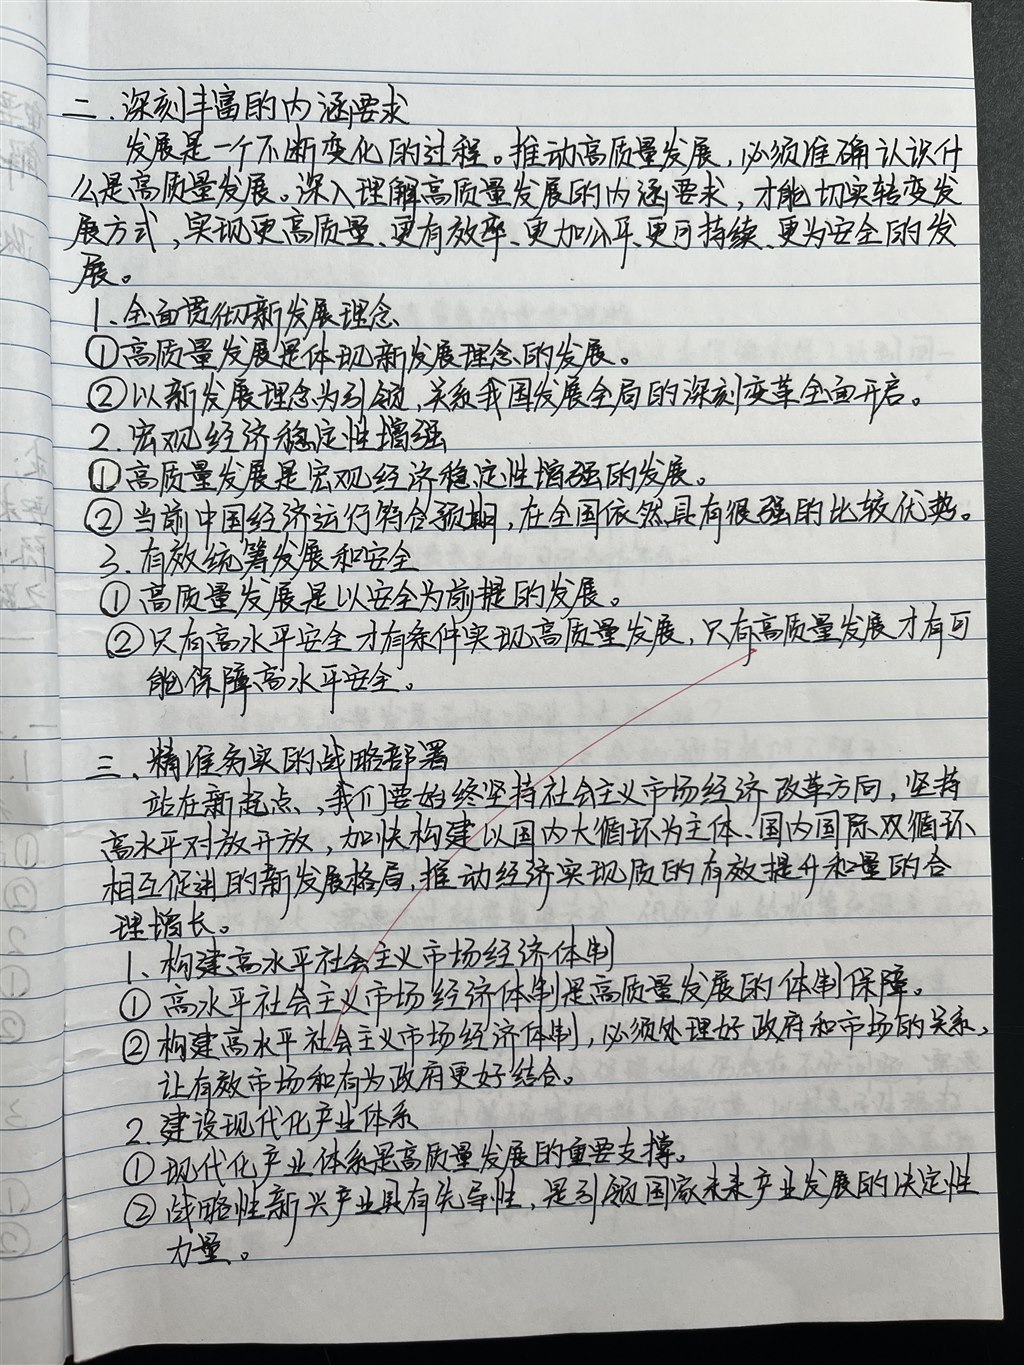 二、深刻丰富的内涵要求
发展是一个不断变化的过程。推动高质量发展，必须准确认识什
么是高质量发展。深入理解高质量发展的内涵要求，才能切实转变发
展方式，实现更高质量、更有效率、更加公平、更可持续、更为安全的发
展。
1、全面贯彻新发展理念
①高质量发展是体现新发展理念的发展。
②以新发展理念为引领，关系我国发展全局的深刻变革全面开启。
2.宏观经济稳定性增强
①高质量发展是宏观经济稳定性增强的发展。
②当前中国经济运行符合预期，在全国依然具有很强的比较优势。
3.有效统筹发展和安全
①高质量发展是以安全为前提的发展。
②只有高水平安全才有条件实现高质量发展，只有高质量发展才有可
能保障高水平安全。
三、精准务实的战略部署
站在新起点，我们要始终坚持社会主义市场经济改革方向，坚持
高水平对放开放，加快构建以国内大循环为主体、国内国际双循环
相互促进的新发展格局，推动经济实现质的有效提升和量的合
理增长。
1、构建高水平社会主义市场经济体制
①高水平社会主义市场经济体制是高质量发展的体制保障。
②构建高水平社会主义市场经济体制，必须处理好政府和市场的关系，
让有效市场和有为政府更好结合。
2.建设现代化产业体系
①现代化产业体系是高质量发展的重要支撑。
②战略性新兴产业具有先导性，是引领国家未来产业发展的决定性
力量。